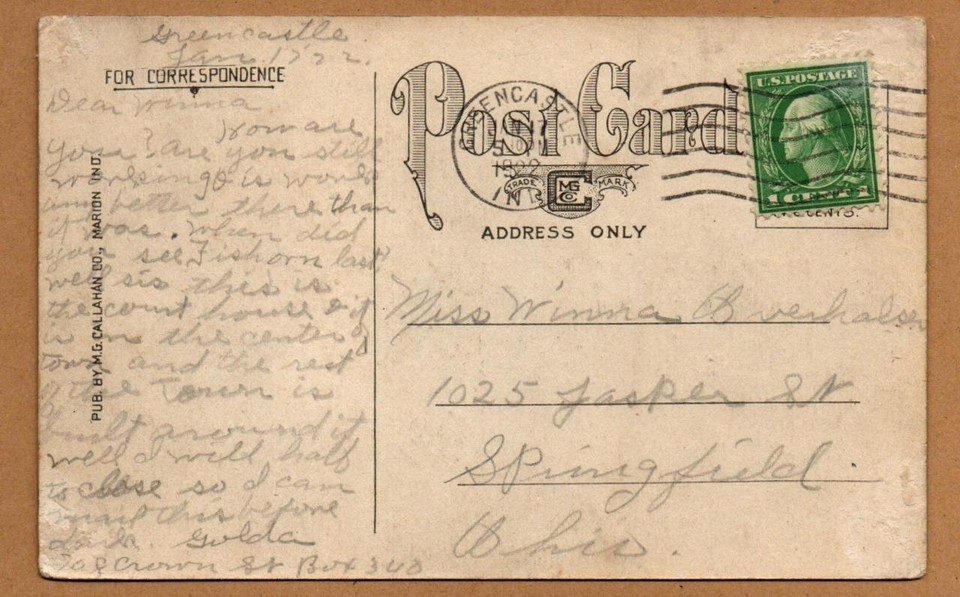 Greencastle.
Jan. 17'22.
FOR CORRESPONDENCE
Dear Winna
How are
you? are you still
working is work
any better there than
it was. When did
you see Fishorn last
well sis this is
the court house & it
is in the center of
town and the rest
of the Town is
built around it
well I will half
to close so I can
mail this before
dark. Golda
Crown St Box 340
PUB. BY M.G. CALLAHAN CO., MARION IND.
POST CARD
GREENCASTLE
JAN 17
IND
TRADE MARK
MG
CO
ADDRESS ONLY
U.S. POSTAGE
1 CENT 1
CENTS.
Miss Winna Overhalser
1025 Jasper St
Springfield
Ohio.